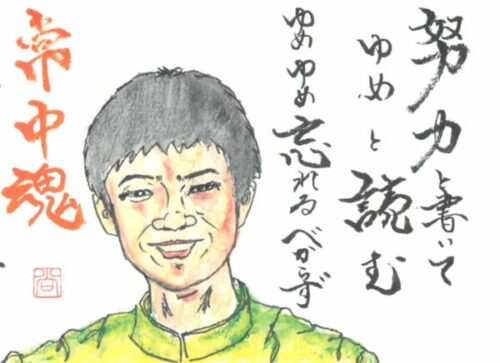 努力と書いて
ゆめと読む
ゆめゆめ忘れるべからず
常中魂
尚